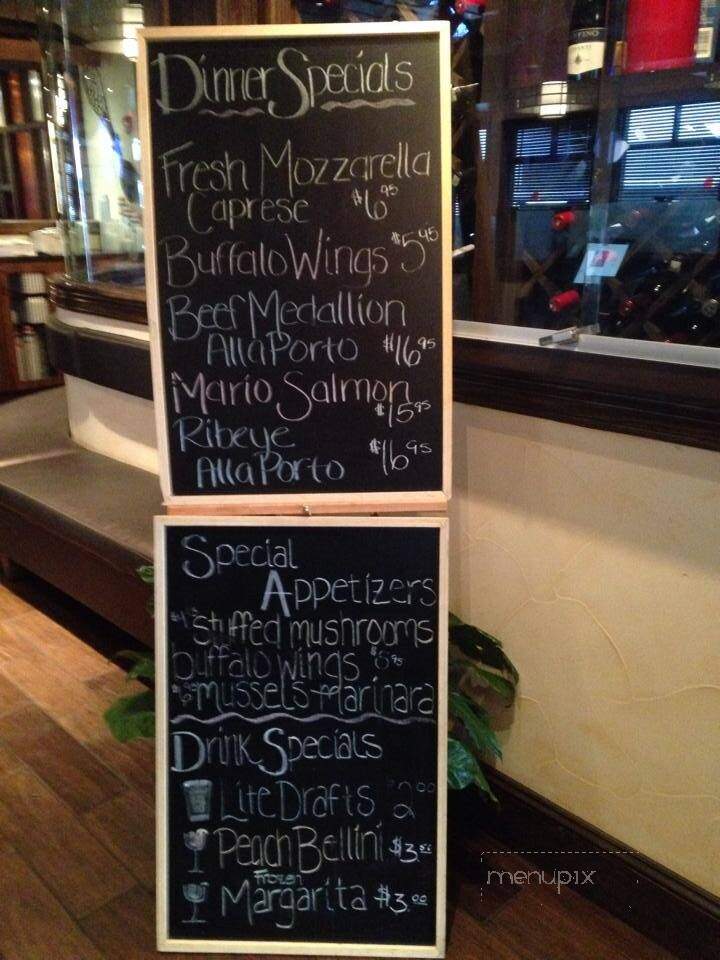 Dinner Specials
Fresh Mozzarella
Caprese $6.95
Buffalo Wings $5.45
Beef Medallion
Alla Porto $16.95
Mario Salmon
$15.95
Ribeye
Alla Porto $16.95
Special
Appetizers
stuffed mushrooms
buffalo wings
mussels marinara
Drink Specials
Lite Drafts 2.00
Peach Bellini $3.50
Frozen
Margarita $3.00
menupix